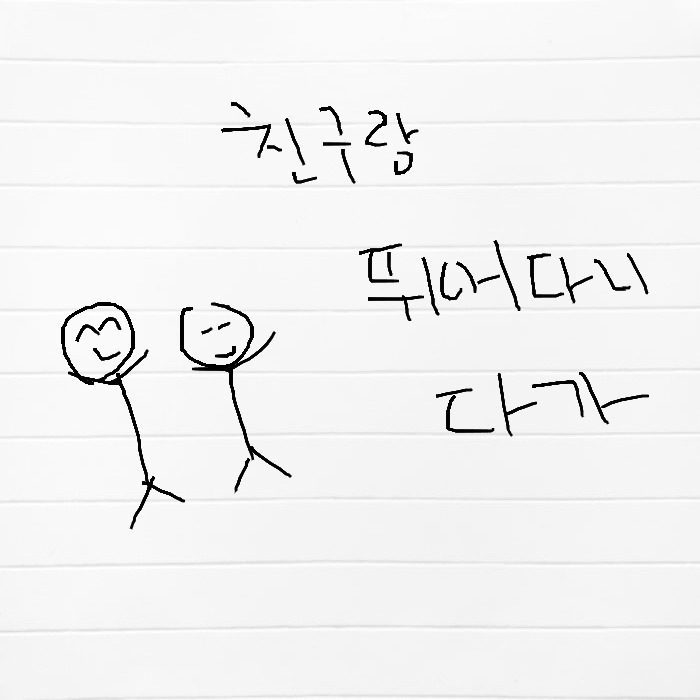 친구랑
뛰어다니
다가